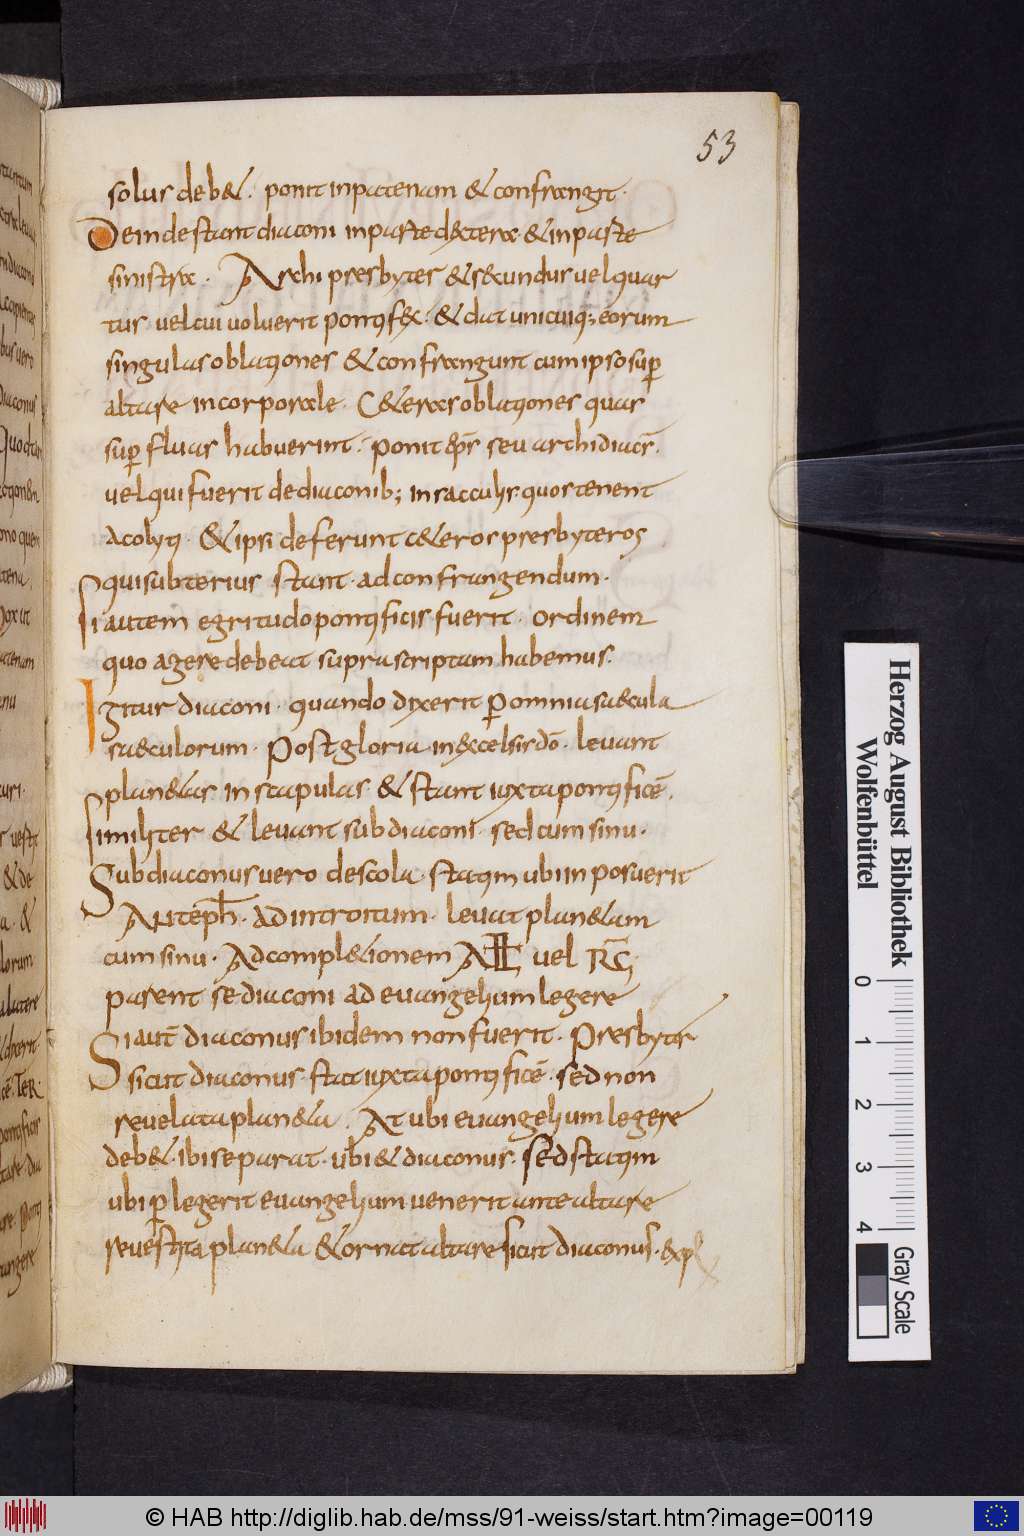 53
solus deb&. ponit inpatenam & confrangit·
Deinde stant diaconi inparte dextera· & inparte
sinistra· Archi presbyter & secundus vel quar
tus vel cui voluerit pontifex· & dat unicuiq; eorum
singulas oblationes & confrangunt cum ipso sup̱
altare incorporale· C&eras oblationes quas
sup̱ fluas habuerint· ponit ep̄s seu archidiac̄·
velqui fuerit dediaconib; insacculis quos tenent
Acolyti· & ipsi deferunt c&eros presbyteros
qui subterius stant· ad confrangendum·
Si autem egritudo pontificis fuerit· ordinem
quo agere debeat suprascriptam habemus·
Igitur diaconi· quando dixerit p̱ omnia saecula
saeculorum· Post gloria in excelsis dō· levant
plan&as in scapulas & stant iuxta pontificē·
Similiter & levant subdiaconi· sed cum sinu·
Subdiaconus vero de scola· statim ubi in posuerit
Antēph· ad introitum· levat plan&am
cum sinu· Ad compl&ionem ALL vel RḠ·
parent se diaconi ad evangelium legere
Si aut̄ diaconus ibidem non fuerit· Presbyter
sicut diaconus· stat iuxta pontificē· sed non
revelata plan&a· At ubi evangelium legere
deb&· ibi se parat· ubi & diaconus· sed statim
ubi p̱legerit evangelium venerit ante altare
revestita plan&a & ornat altare sicut diaconus· expl
Herzog August Bibliothek
Wolfenbüttel
0 1 2 3 4
Gray Scale
© HAB http://diglib.hab.de/mss/91-weiss/start.htm?image=00119